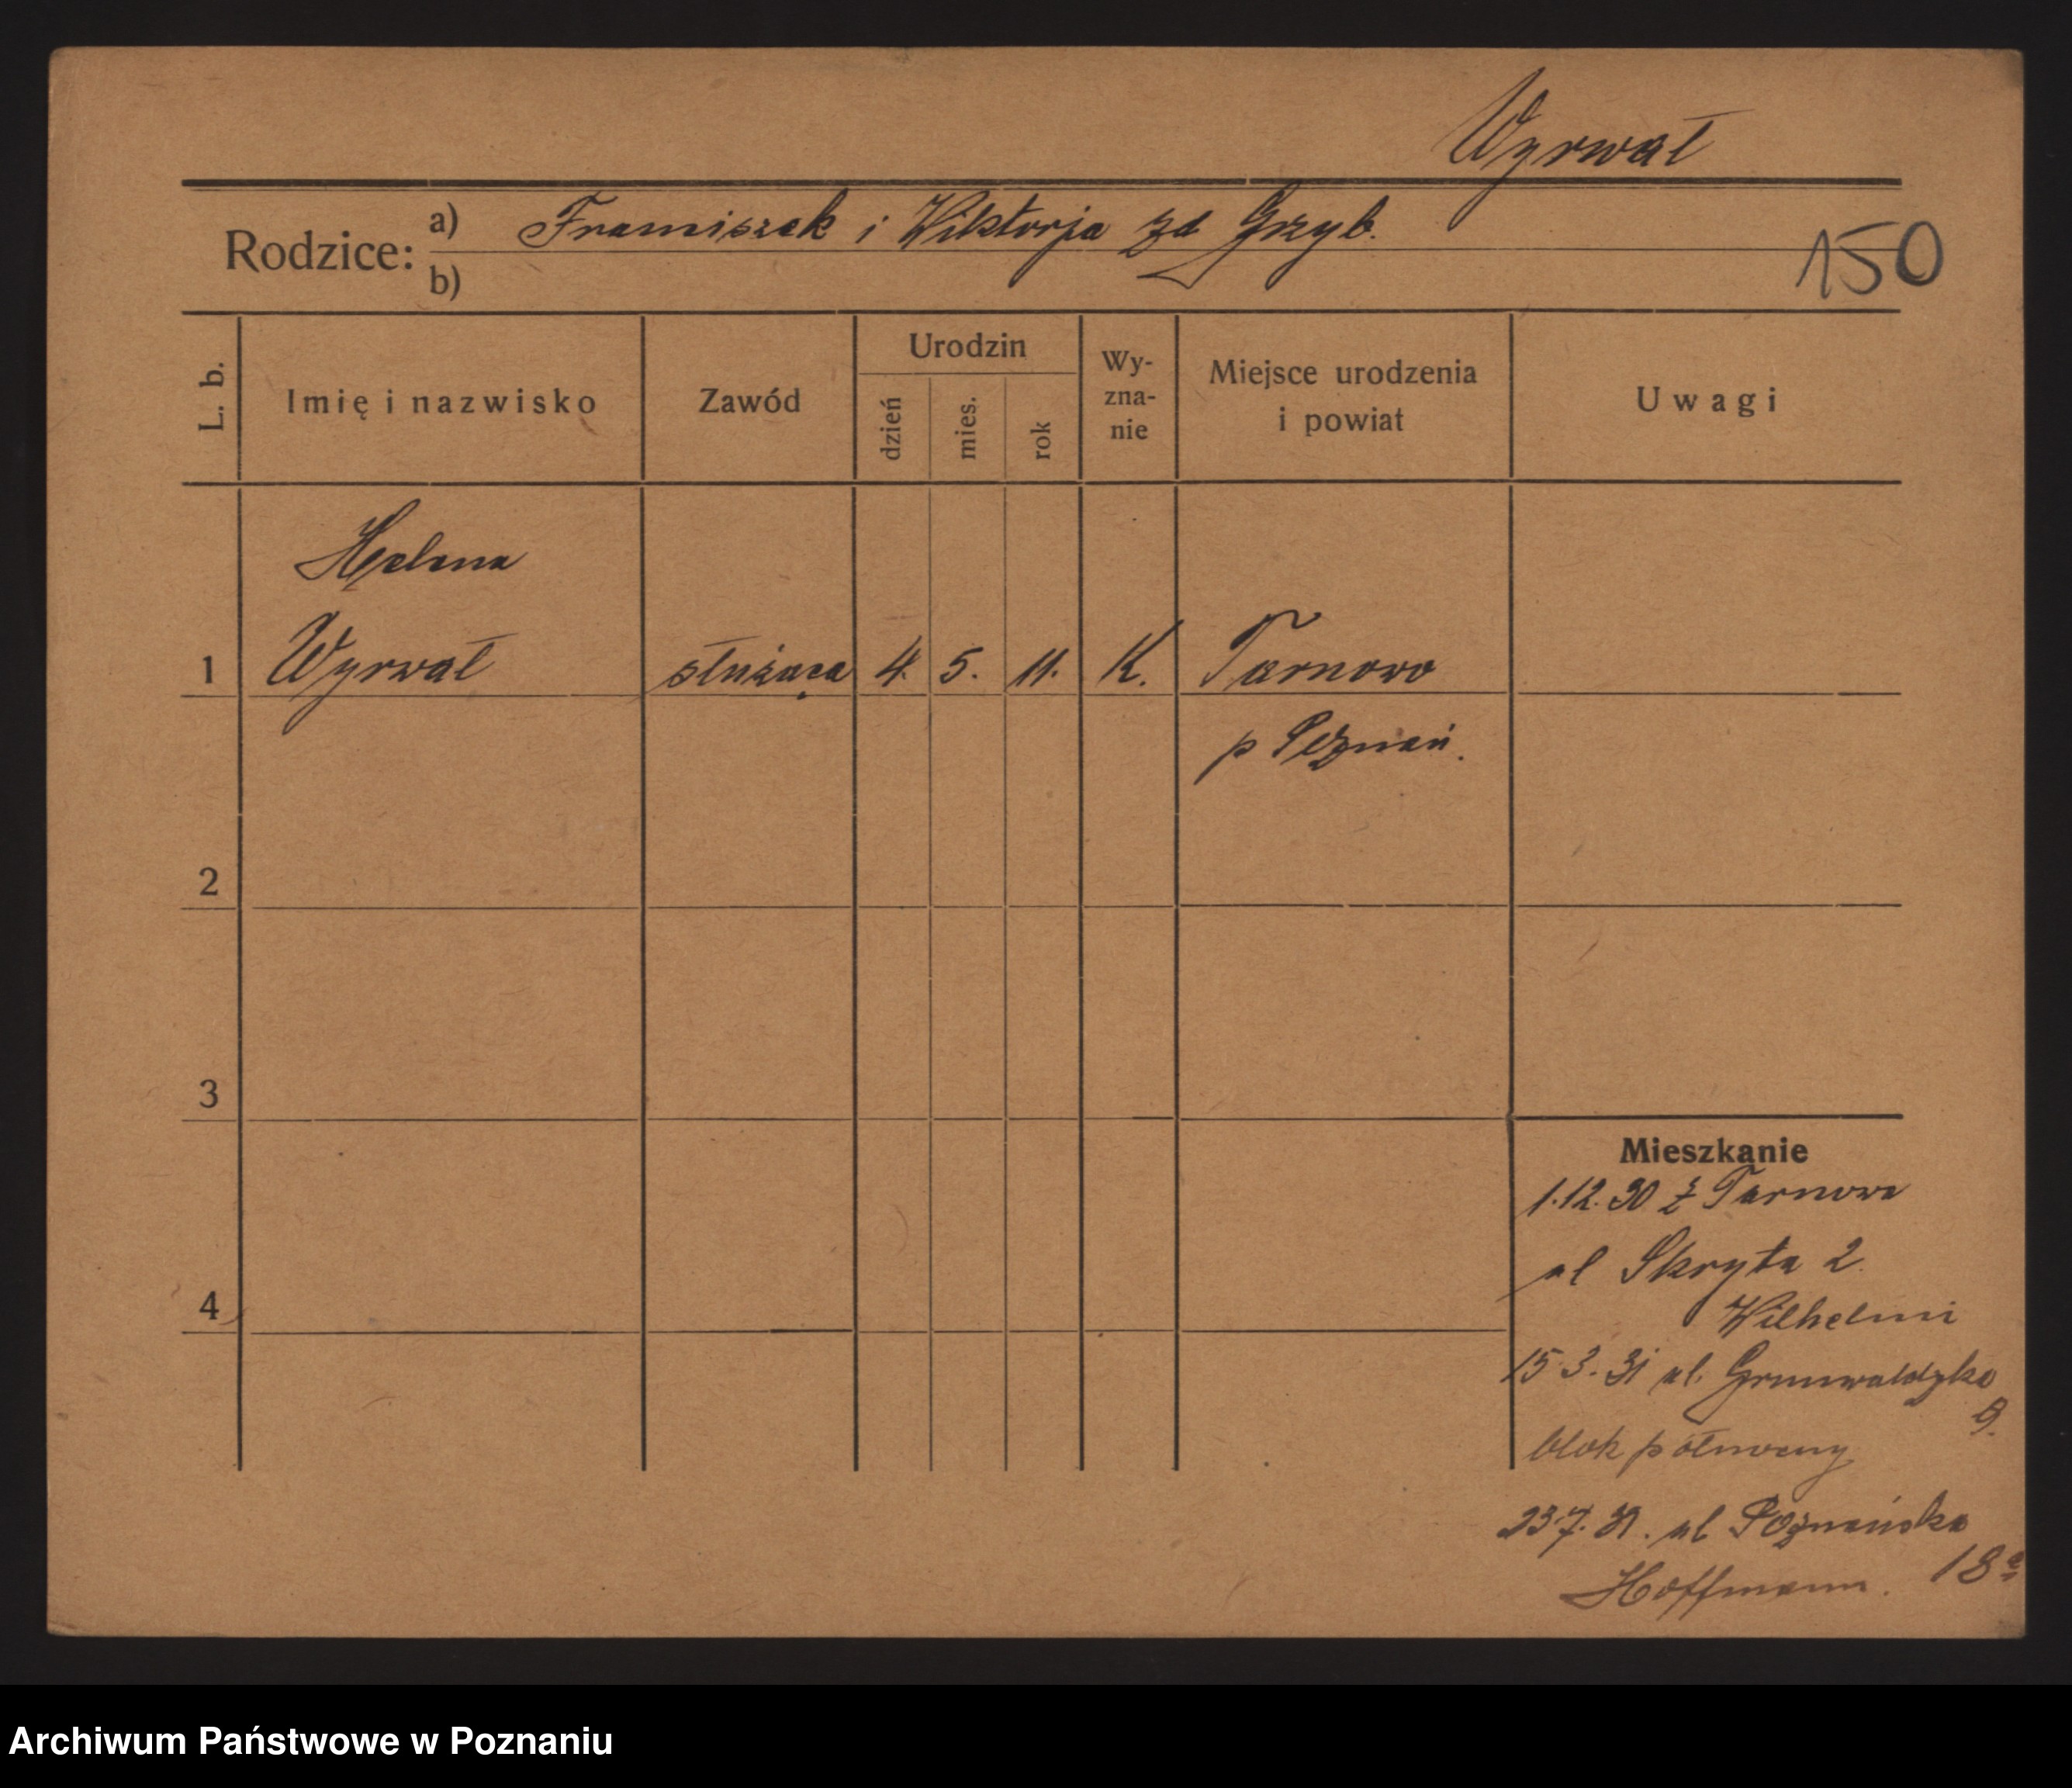 Wyrwał
Rodzice: a) Franciszek i Wiktorja zd Grzyb.
b)
150
L. b.
Imię i nazwisko
Zawód
Urodzin
dzień
mies.
rok
Wy-
zna-
nie
Miejsce urodzenia
i powiat
Uwagi
Helena
1 Wyrwał służąca 4. 5. 11. K. Tarnowo
p Poznań.
2
3
4
Mieszkanie
1.12.30 z Tarnowa
ul Skryta 2.
Wilhelmi
15.3.31 ul. Grunwaldzka
9.
blok północny
23.7.31. ul Poznańska
Hoffmann. 18a
Archiwum Państwowe w Poznaniu